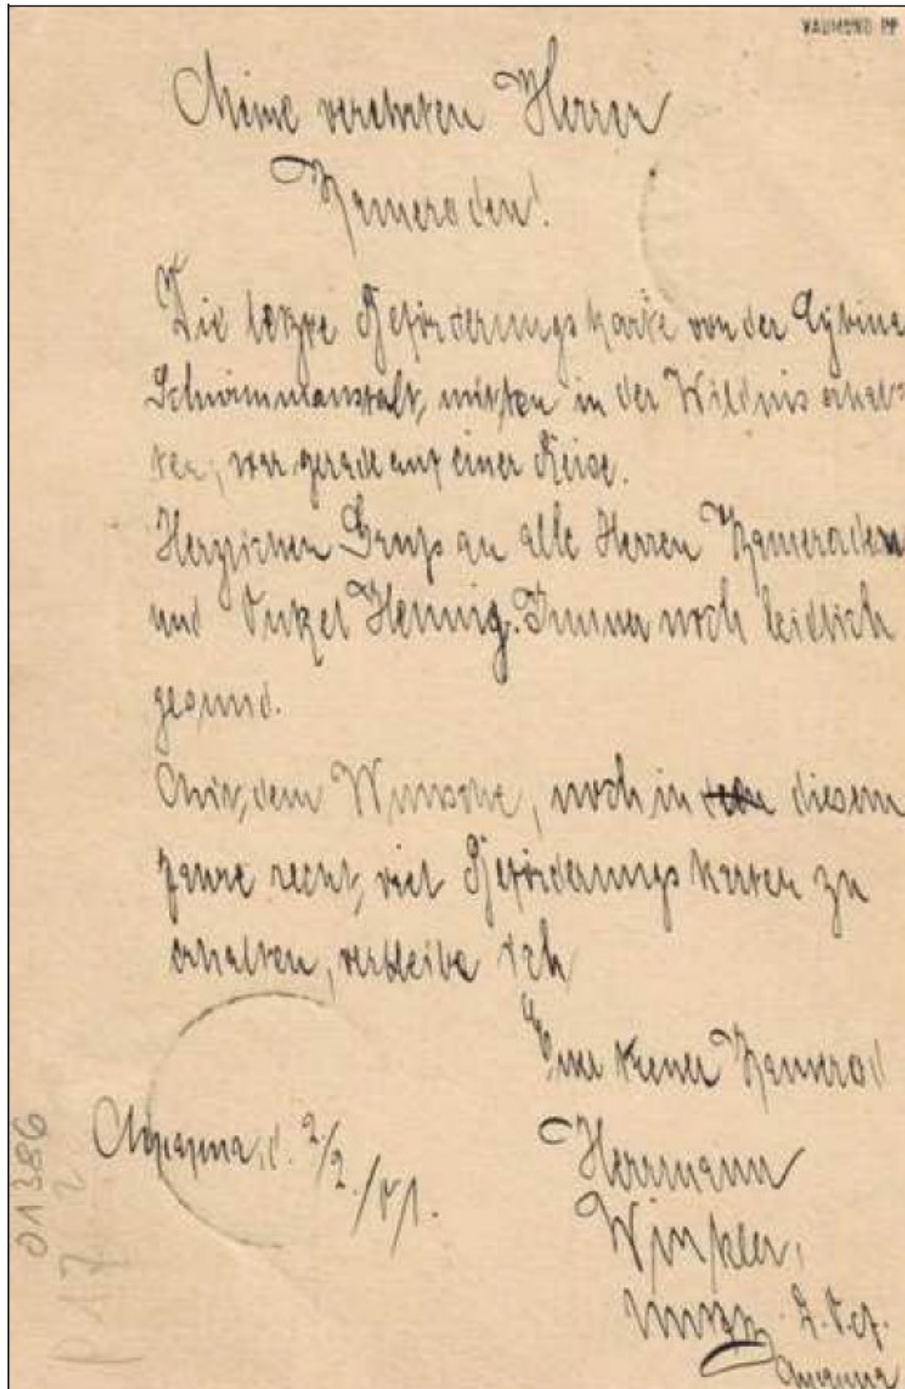 VAUMUND PP
Meine verehrten Herren
Kameraden!
Die letzte Beförderungskarte von der
Schwimmanstalt, mitten in der Wildnis erhal-
ten, war gerade auf einer Reise.
Herzlichen Gruß an alle Herren Kameraden
und Onkel Hennig. Immer noch leidlich
gesund.
Mit dem Wunsche, noch in diesem
Jahre recht viel Beförderungskarten zu
erhalten, verbleibe ich
Euer treuer Kamerad
d. 2/2./01.
Herrmann
Winkler,
01386
2
P 17